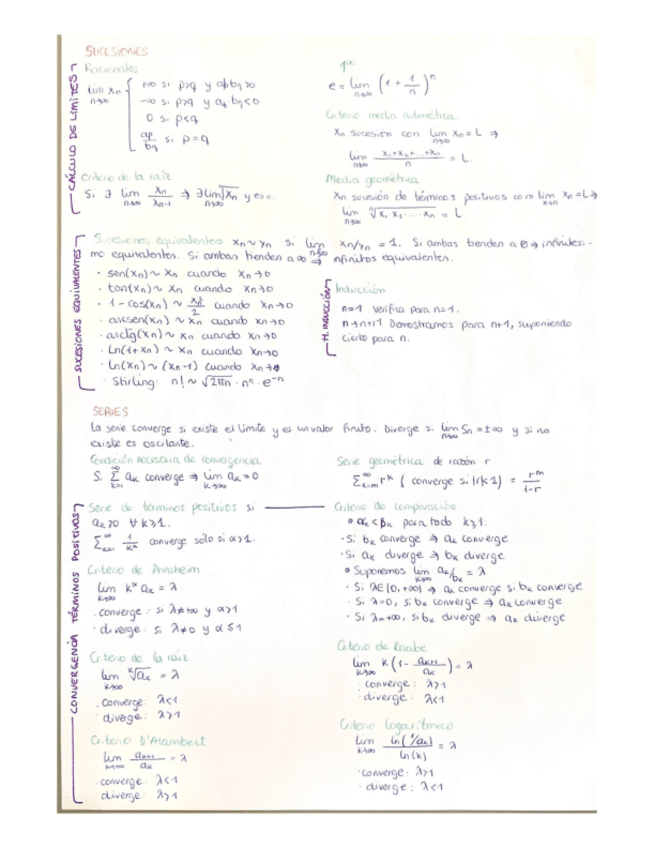 SUCESIONES
CÁLCULO DE LÍMITES
Racionales
lim xn n→∞ { +∞ si p>q y ap bq>0
-∞ si p>q y ap bq<0
0 si p<q
ap/bq si p=q
Criterio de la raíz
Si ∃ lim n→∞ xn/xn-1 ⇒ ∃ lim ⁿ√xn y es =.
1^∞
e = lim n→∞ (1 + 1/n)^n
Criterio media aritmética
xn sucesión con lim n→∞ xn = L ⇒
lim n→∞ x1+x2+...+xn / n = L.
Media geométrica
xn sucesión de términos positivos con lim n→∞ xn = L ⇒
lim n→∞ ⁿ√x1 x2 ... xn = L
SUCESIONES EQUIVALENTES
Sucesiones equivalentes xn ~ yn si lim n→∞ xn/yn = 1. Si ambas tienden a 0 ⇒ infinitesi-
mo equivalentes. Si ambas tienden a ∞ ⇒ infinitos equivalentes.
· sen(xn) ~ xn cuando xn→0
· tan(xn) ~ xn cuando xn→0
· 1 - cos(xn) ~ xn²/2 cuando xn→0
· arcsen(xn) ~ xn cuando xn→0
· arctg(xn) ~ xn cuando xn→0
· Ln(1+xn) ~ xn cuando xn→0
· Ln(xn) ~ (xn-1) cuando xn→
· Stirling: n! ~ √2πn · n^n · e^-n
H. INDUCCIÓN
Inducción
n=1 verifica para n=1.
n→n+1 Demostramos para n+1, suponiendo
cierto para n.
SERIES
La serie converge si existe el límite y es un valor finito. Diverge si lim n→∞ Sn = ±∞ y si no
existe es oscilante.
Condición necesaria de convergencia
Si ∑ k=1 ∞ ak converge ⇒ lim k→∞ ak = 0
Serie geométrica de razón r
∑ k=m ∞ r^k (converge si |r|<1) = r^m/1-r
CONVERGENCIA TÉRMINOS POSITIVOS
Serie de términos positivos si
ak>0 ∀ k≥1.
∑ k=1 ∞ 1/k^α converge solo si α>1.
Criterio de Prinsheim
lim k→∞ k^α ak = λ
· converge: si λ≠+∞ y α>1
· diverge: si λ≠0 y α≤1
Criterio de la raíz
lim k→∞ ᵏ√ak = λ
· converge: λ<1
· diverge: λ>1
Criterio D'Alambert
lim k→∞ ak+1/ak = λ
· converge: λ<1
· diverge: λ>1
Criterio de comparación
• ak < bk para todo k≥1:
· Si bk converge ⇒ ak converge
· Si ak diverge ⇒ bk diverge
• Suponemos lim k→∞ ak/bk = λ
· Si λ∈(0,+∞) ⇒ ak converge si bk converge
· Si λ=0, si bk converge ⇒ ak converge
· Si λ=+∞, si bk diverge ⇒ ak diverge
Criterio de Raabe
lim k→∞ k(1 - ak+1/ak) = λ
· converge: λ>1
· diverge: λ<1
Criterio logarítmico
lim k→∞ ln(1/ak)/ln(k) = λ
· converge: λ>1
· diverge: λ<1